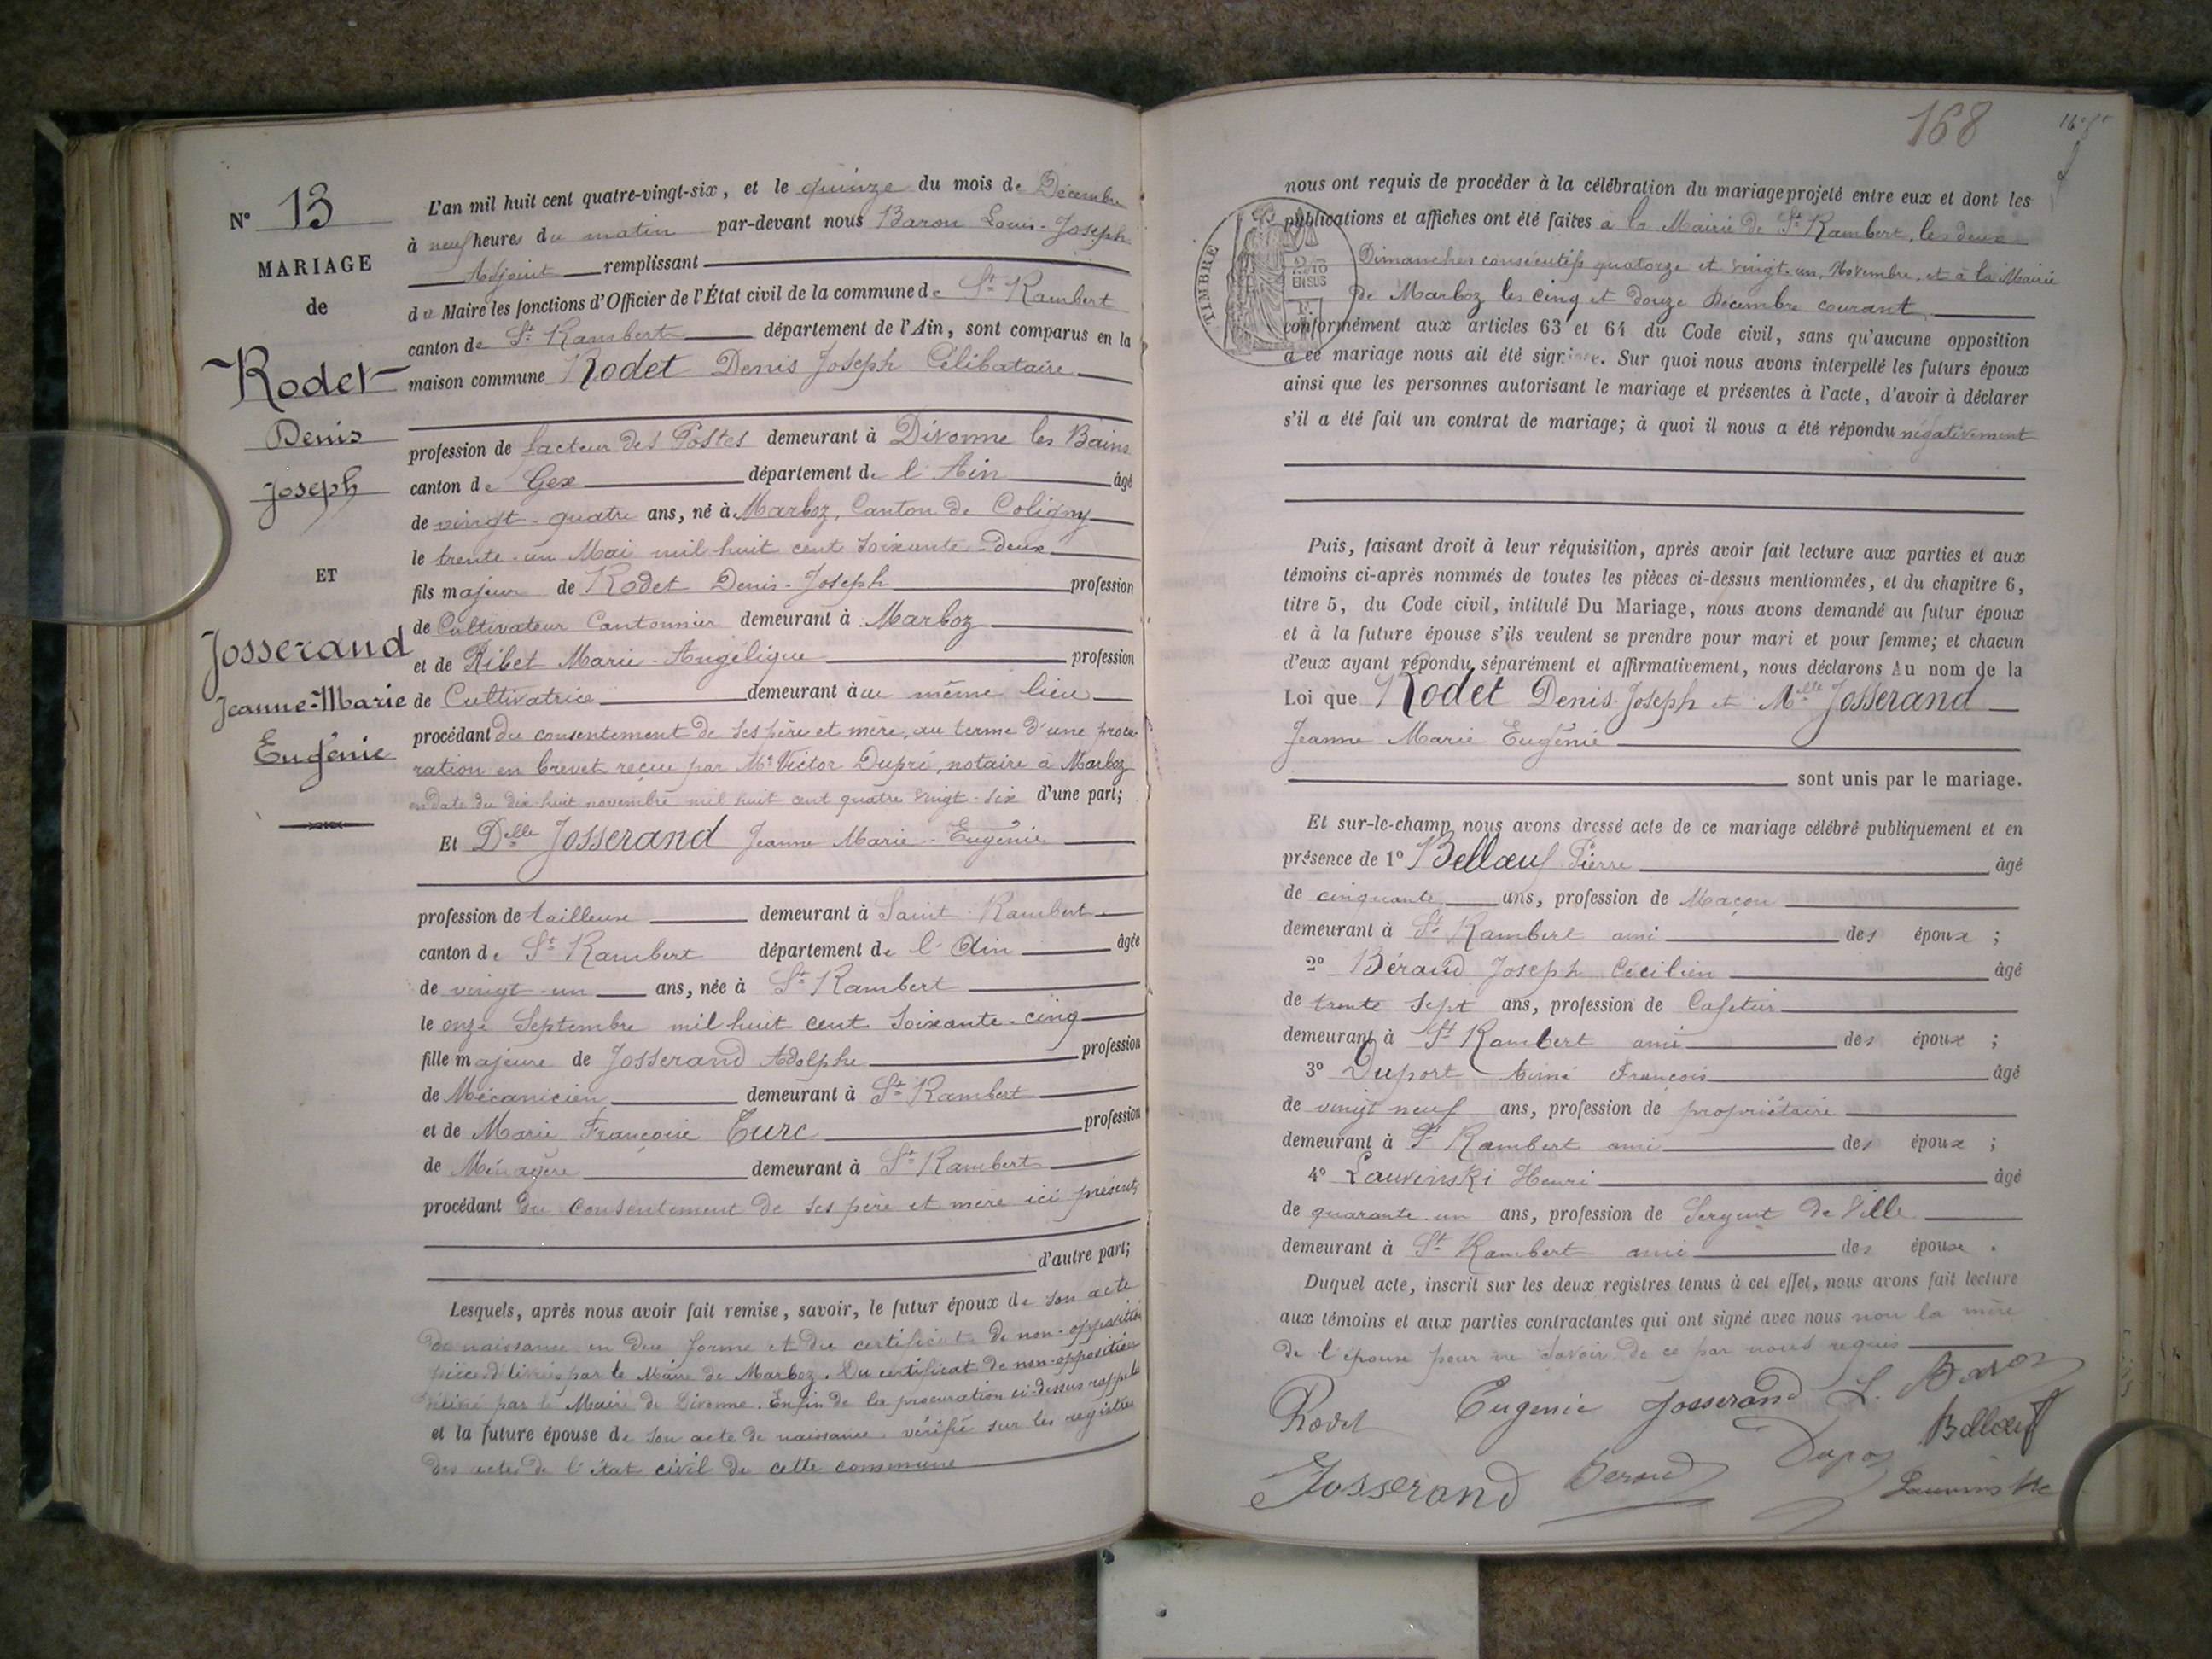 N° 13
MARIAGE
de
Rodet
Denis
Joseph
ET
Josserand
Jeanne-Marie
Eugénie
L'an mil huit cent quatre-vingt-six, et le quinze du mois de Décembre
à neuf heures du matin par-devant nous Baron Louis-Joseph
Adjoint remplissant
du Maire les fonctions d'Officier de l'État civil de la commune de St Rambert
canton de St Rambert département de l'Ain, sont comparus en la
maison commune Rodet Denis Joseph Célibataire
profession de facteur des Postes demeurant à Divonne les Bains
canton de Gex département de l'Ain âgé
de vingt-quatre ans, né à Marboz, Canton de Coligny
le trente-un Mai mil huit cent soixante-deux
fils majeur de Rodet Denis-Joseph profession
de Cultivateur Cantonnier demeurant à Marboz
et de Ribet Marie-Angélique profession
de Cultivatrice demeurant au même lieu
procédant du consentement de ses père et mère, au terme d'une procu
ration en brevet reçue par Me Victor Dupré, notaire à Marboz
en date du dix-huit novembre mil huit cent quatre vingt-six d'une part;
Et Delle Josserand Jeanne Marie-Eugénie
profession de tailleuse demeurant à Saint Rambert
canton de St Rambert département de l'Ain âgée
de vingt-un ans, née à St Rambert
le onze Septembre mil huit cent soixante-cinq
fille majeure de Josserand Adolphe profession
de Mécanicien demeurant à St Rambert
et de Marie Françoise Turc profession
de Ménagère demeurant à St Rambert
procédant du consentement de ses père et mère ici présents
d'autre part;
Lesquels, après nous avoir fait remise, savoir, le futur époux de son acte
de naissance en due forme et du certificat de non-opposition
pièces délivrées par le Maire de Marboz. Du certificat de non-opposition
délivré par le Maire de Divonne. Enfin de la procuration ci-dessus rappelé
et la future épouse de son acte de naissance vérifié sur les registres
des actes de l'état civil de cette commune
168
nous ont requis de procéder à la célébration du mariage projeté entre eux et dont les
publications et affiches ont été faites à la Mairie de St Rambert, les deux
Dimanches consécutifs quatorze et vingt-un, Novembre, et à la Mairie
de Marboz les cinq et douze Décembre courant
TIMBRE
EN SUS
conformément aux articles 63 et 64 du Code civil, sans qu'aucune opposition
à ce mariage nous ait été signifiée. Sur quoi nous avons interpellé les futurs époux
ainsi que les personnes autorisant le mariage et présentes à l'acte, d'avoir à déclarer
s'il a été fait un contrat de mariage; à quoi il nous a été répondu négativement
Puis, faisant droit à leur réquisition, après avoir fait lecture aux parties et aux
témoins ci-après nommés de toutes les pièces ci-dessus mentionnées, et du chapitre 6,
titre 5, du Code civil, intitulé Du Mariage, nous avons demandé au futur époux
et à la future épouse s'ils veulent se prendre pour mari et pour femme; et chacun
d'eux ayant répondu séparément et affirmativement, nous déclarons Au nom de la
Loi que Rodet Denis-Joseph et Melle Josserand
Jeanne Marie Eugénie
sont unis par le mariage.
Et sur-le-champ nous avons dressé acte de ce mariage célébré publiquement et en
présence de 1° Bellœuf Pierre âgé
de cinquante ans, profession de Maçon
demeurant à St Rambert ami des époux ;
2° Béraud Joseph Cécilien âgé
de trente sept ans, profession de Cafetier
demeurant à St Rambert ami des époux ;
3° Duport Aimé François âgé
de vingt neuf ans, profession de propriétaire
demeurant à St Rambert ami des époux ;
4° Lauvinski Henri âgé
de quarante-un ans, profession de Sergent de Ville
demeurant à St Rambert ami des époux .
Duquel acte, inscrit sur les deux registres tenus à cet effet, nous avons fait lecture
aux témoins et aux parties contractantes qui ont signé avec nous non la mère
de l'épouse pour ne savoir de ce par nous requis
Rodet Eugenie Josserand L. Baron
Josserand Beraud Bellœuf